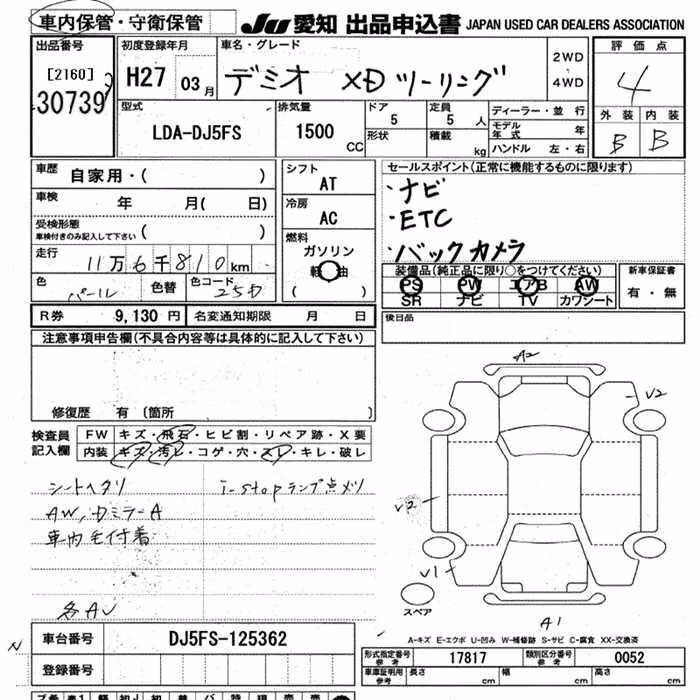 車内保管・守衛保管
JU 愛知 出品申込書 JAPAN USED CAR DEALERS ASSOCIATION
出品番号
[2160]
30739
初度登録年月
H27 03月
車名・グレード
デミオ XD ツーリング
2WD
4WD
評価点
4
外装 内装
B B
型式
LDA-DJ5FS
排気量
1500 CC
ドア
5
定員
5 人
形状
積載 kg
ディーラー・並行
モデル年式 年
ハンドル 左・右
車歴
自家用・( )
車検
年 月( 日)
受検形態
車検付きのみ記入して下さい ( )
走行
11万6千810km
色
パール
色替
色コード
25D
シフト
AT
冷房
AC
燃料
ガソリン
軽油
( )
セールスポイント(正常に機能するものに限ります)
・ナビ
・ETC
・バックカメラ
装備品(純正品に限り○をつけてください)
PS PW エアB AW
SR ナビ TV カワシート
新車保証書
有・無
R券 9,130円 名変通知期限 月 日
後日品
注意事項申告欄(不具合内容等は具体的に記入して下さい)
修復歴 有 〔箇所 〕
検査員記入欄
FW キズ・飛石・ヒビ割・リペア跡・X要
内装 キズ・汚レ・コゲ・穴・スレ・キレ・破レ
シートヘタリ
i-stopランプ点メツ
AW,ドミラーA
車内毛付着
各AU
A2
V2
V2
V1
スペア
A1
A-キズ E-エクボ U-凹み W-補修跡 S-サビ C-腐食 XX-交換済
車台番号
DJ5FS-125362
登録番号
N
形式指定番号 参考
17817
類別区分番号 参考
0052
車庫証明用 参考
長さ cm
幅 cm
高さ cm